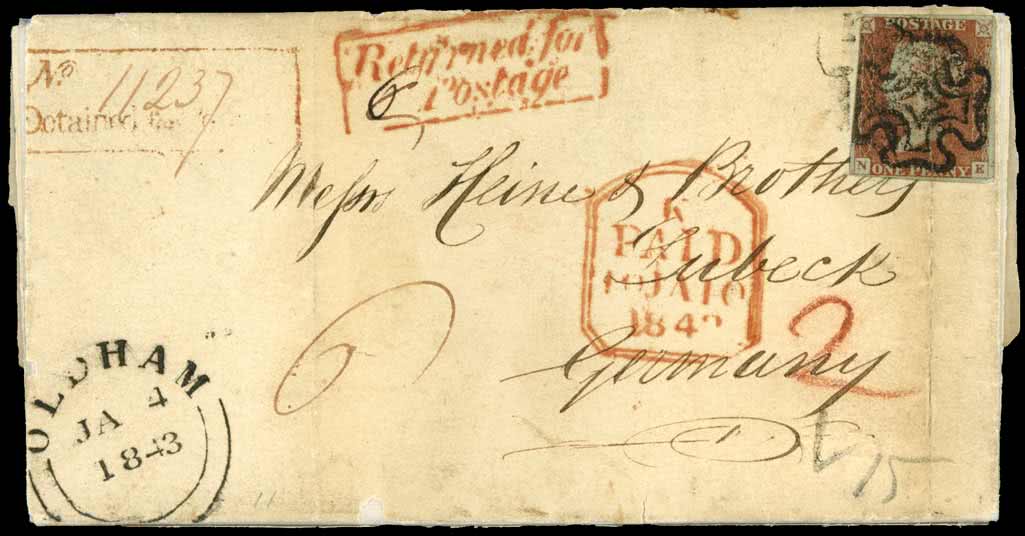 No 11237
Detained for
Returned for
Postage
6
POSTAGE
ONE PENNY
N E
Messrs Heine & Brothers
Lubeck
Germany
PAID
1843
2
OLDHAM
JA 4
1843
15